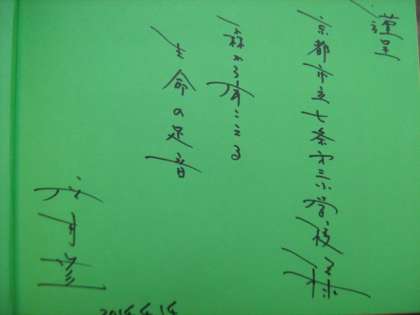 謹呈
京都市立七条第三小学校様
森から聞こえる
生命の足音